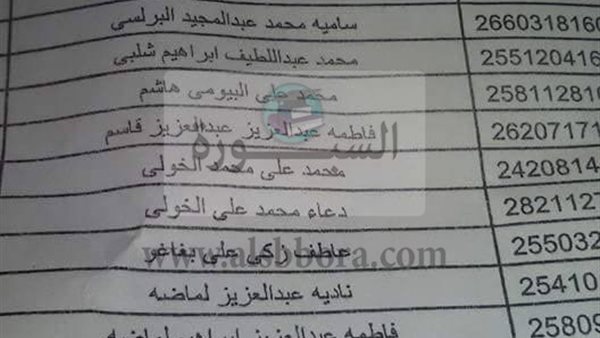 سامیه محمد عبدالمجید البرلسي 2660318160
محمد عبداللطیف ابراهیم شلبي 255120416
محمد علي البیومي هاشم 258112810
فاطمه عبدالعزیز عبدالعزیز قاسم 26207171
محمد علي محمد الخولي 2420814
دعاء محمد علي الخولي 2821127
عاطف زکي علي 255032
نادیه عبدالعزیز لماضه 25410
فاطمه عبدالعزیز ابراهیم لماضه 25809
السبورة
www.alsbbora.com